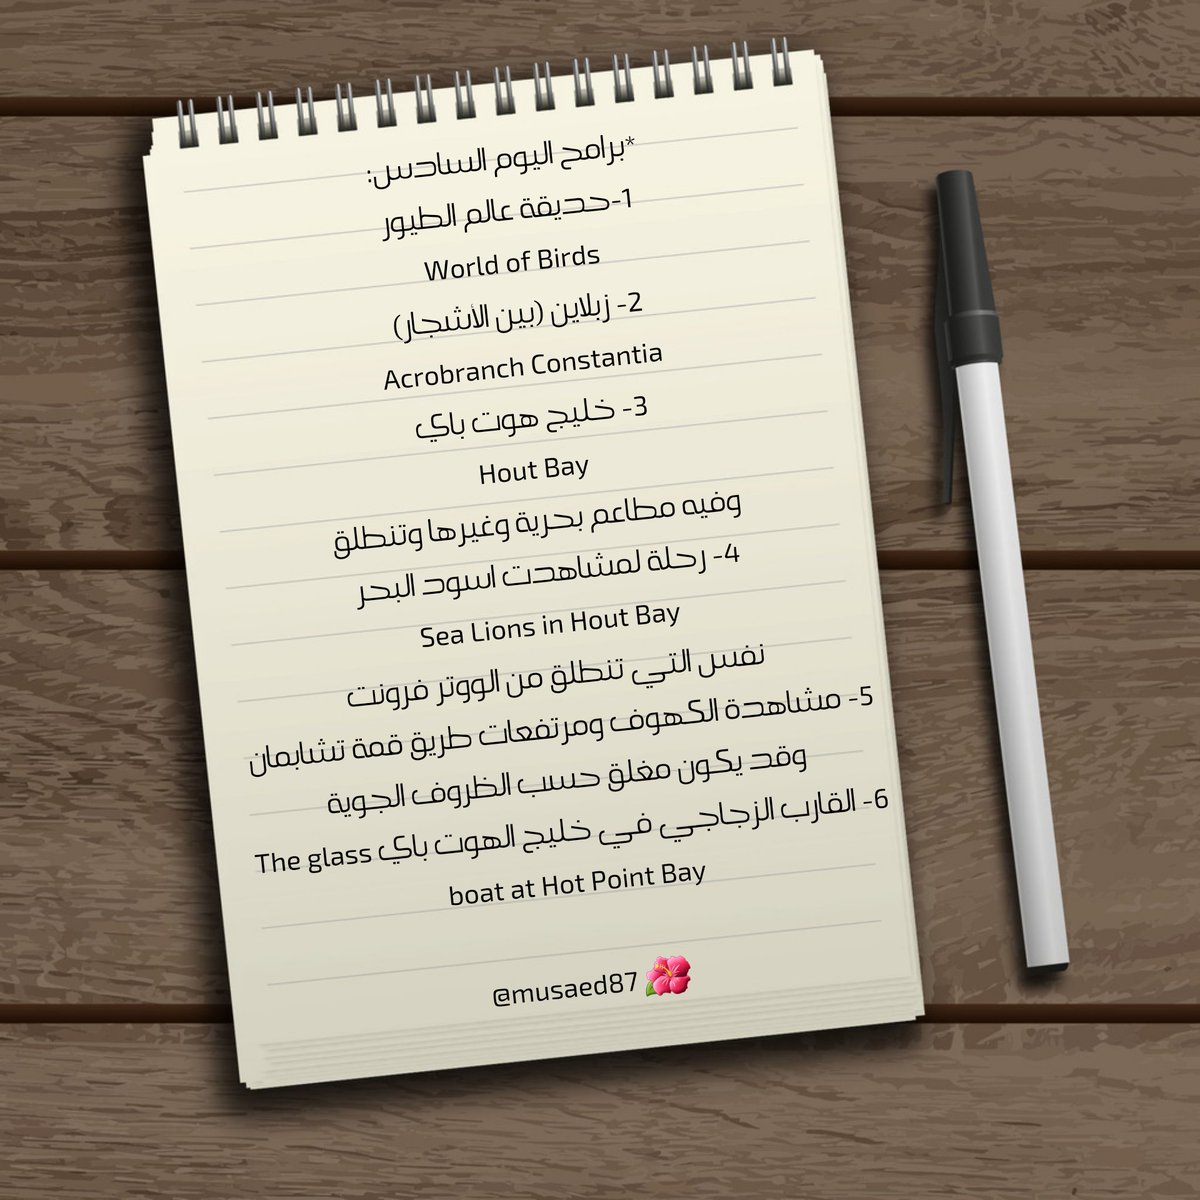 *برامج اليوم السادس:
1-حديقة عالم الطيور
World of Birds
2- زبلاين (بين الأشجار)
Acrobranch Constantia
3- خليج هوت باي
Hout Bay
وفيه مطاعم بحرية وغيرها وتنطلق
4- رحلة لمشاهدت اسود البحر
Sea Lions in Hout Bay
نفس التي تنطلق من الووتر فرونت
5- مشاهدة الكهوف ومرتفعات طريق قمة تشابمان
وقد يكون مغلق حسب الظروف الجوية
6- القارب الزجاجي في خليج الهوت باي The glass
boat at Hot Point Bay
@musaed87